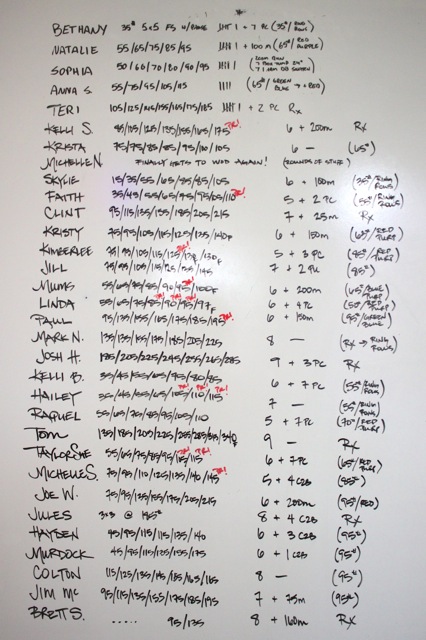 BETHANY 35# 5x5 FS 7 PC (35#/RED
NATALIE 55/65/75/85/95 + 100m (65#/RED PURPLE)
SOPHIA 50/60/70/80/90/95 IIII
ANNA S. 55/75/95/105/95 IIII (65#/GREEN BLUE → RED)
TERI 105/125/ /155/165/175/185 + 2 PC Rx
KELLI S. 95/115/125/135/155/165/175 PR! 6 + 200m Rx
KRISTA 75/75/85/85/95/110/105 6 — (65#)
MICHELLE N. FINALLY GETS TO WOD AGAIN! (ROUNDS OF STUFF)
SKYLIE 15/35/55/65/85/85/105 6 + 100m (35#/RING ROWS)
FAITH 35/45/55/65/75/95/105/110 PR! 5 + 2 PC (55#/RING ROWS)
CLINT 95/115/135/155/185/205/215 7 + 25m Rx
KRISTY 75/95/105/115/125/125/140F 6 + 150m (65#/RED PURP)
KIMBERLEE 75/95/105/115/125 PR! 5 + 3 PC (95#/RED PURP)
JILL 75/95/105/115/125/ /145 7 + 2 PK (95#)
MUMS 55/65/75/85/90/95 PR! /100F 6 + 200m (65/BLUE PURP)
LINDA 55/65/75/85/90/95/97F PR! PR! PR! 6 + 4 PC (50#/RED PURP)
PAUL 95/135/155/165/175/185/195 PR! 6 + 150m (95#/GREEN BLUE)
MARK N. 135/135/155/175/185/205/225 8 — (RX → RING ROWS)
JOSH H. 185/205/225/245/255/265/285 9 + 3 PC Rx
KELLI B. 35/45/55/65/75/80/85 6 + 7 PC (55#/RING ROWS)
HAILEY 35/45/55/65/105/110/115 PR! PR! PR! 7 — (55#/RING ROWS)
RAQUEL 55/65/75/85/95/105/110 5 + 7 PC (70#/RED PURP)
TOM 135/185/205/225/ 9 — Rx
TAYLOR SUE 55/65/75/85/95/ /115 PR! PR! 6 + 7PC (65#/RED PURP)
MICHELLE S. 75/95/110/125/135/140/145 PR! 5 + 4 C2B (85#)
JOE W. 75/95/135/155/175/205/215 6 + 200m (95#/RED)
JULES 3x3 @ 185# 8 + 4 C2B Rx
HAYDEN 45/95/115/115/135/140 6 + 3 C2B (95#)
MURDOCK 45/95/115/135/155/175 6 + 1 C2B (95#)
COLTON 115/125/135/145/155/165/165 8 — (95#)
JIM MC 95/115/135/155/175/185/195 7 + 75m (95#)
BRETT S. ..... 95/135 8 + 160m Rx